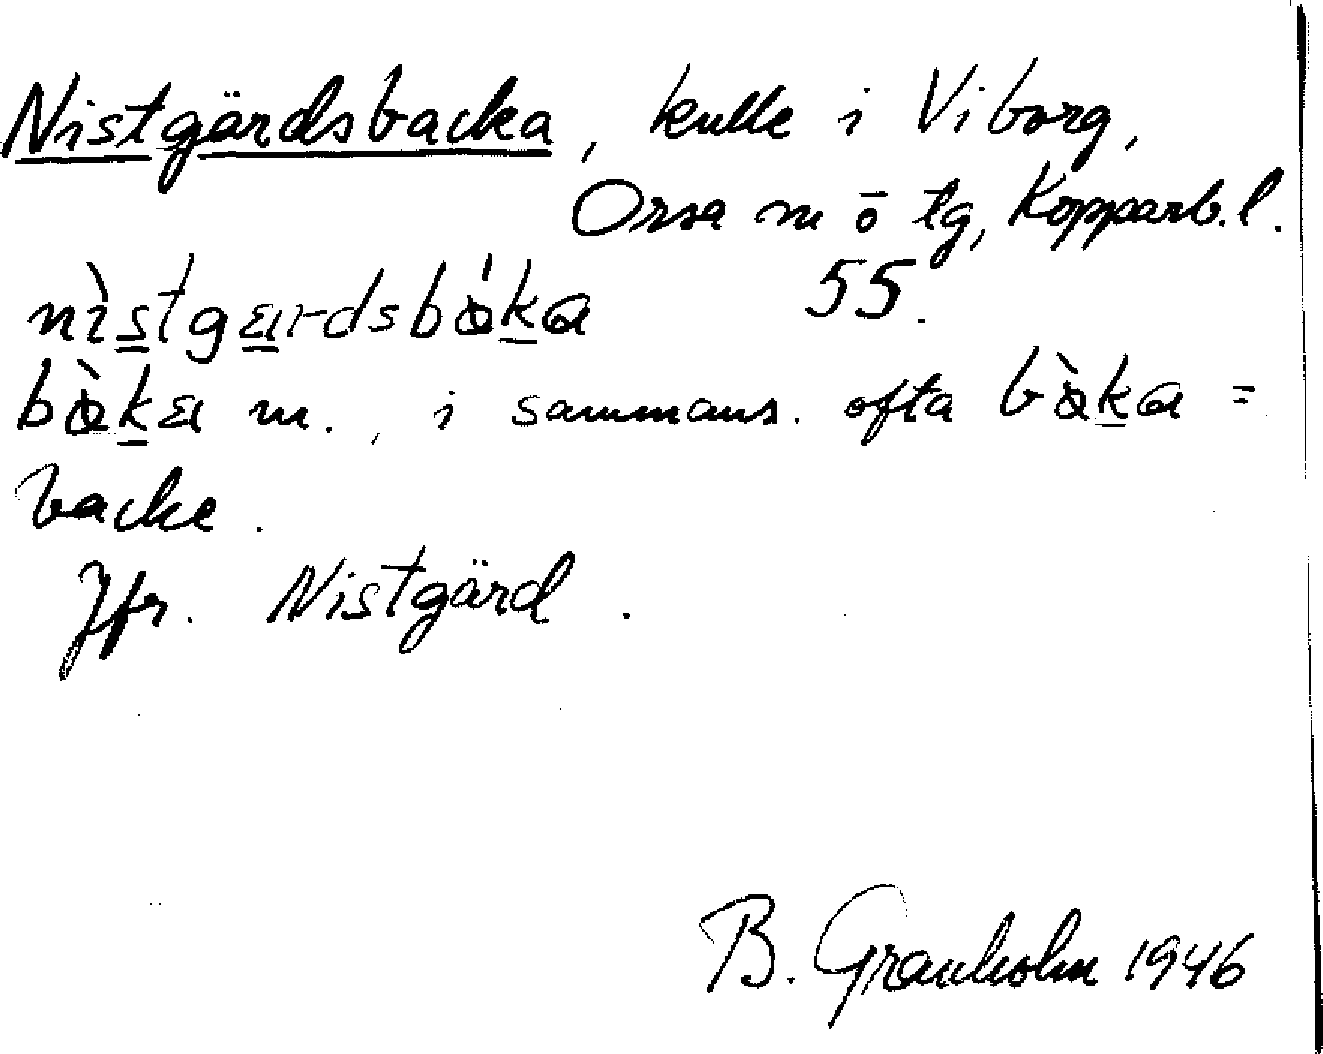 Nistgärdsbacka, kulle i Viborg,
Orsa m ō tg, Kopparb.l.
nìstgærdsbáka 55.
bàkæ m., i sammans. ofta bàka =
backe.
Jfr. Nistgärd.
B. Granholm 1946